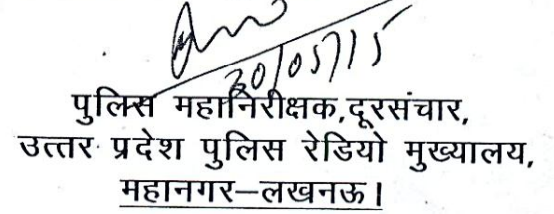 20/05/15
पुलिस महानिरीक्षक,दूरसंचार,
उत्तर प्रदेश पुलिस रेडियो मुख्यालय,
महानगर–लखनऊ।